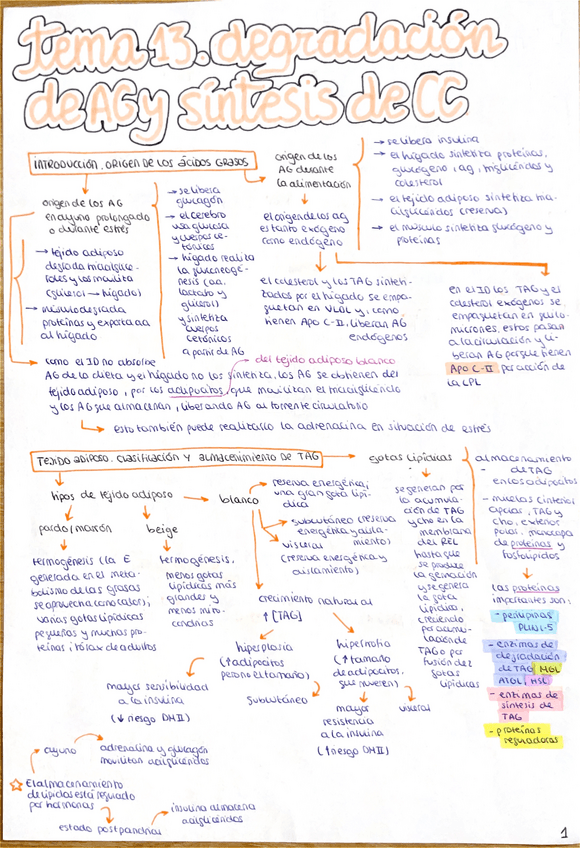 tema 13. degradación
de AG y síntesis de CC
INTRODUCCIÓN. ORIGEN DE LOS ÁCIDOS GRASOS
origen de los AG
en ayuno prolongado
o durante estrés
→ tejido adiposo
degrada triacilglice-
roles y los moviliza
(glicerol → hígado)
→ músculo degrada
proteínas y exporta aa
al hígado
→ se libera
glucagón
→ el cerebro
usa glucosa
y cuerpos ce-
tónicos
→ hígado realiza
la gluconeogé-
nesis (aa,
lactato y
glicerol)
y sintetiza
cuerpos
cetónicos
a partir de AG
origen de los
AG durante
la alimentación
→ se libera insulina
→ el hígado sintetiza proteínas,
glucógeno, ag, triglicéridos y
colesterol
→ el tejido adiposo sintetiza tria-
cilglicéridos (reserva)
→ el músculo sintetiza glucógeno y
proteínas
el origen de los ag
es tanto exógeno
como endógeno
el colesterol y los TAG sinteti-
zados por el hígado se empa-
quetan en VLDL y, como
tienen Apo C-II, liberan AG
endógenos
en el ID los TAG y el
colesterol exógenos se
empaquetan en quilo-
micrones, estos pasan
a la circulación y li-
beran AG porque tienen
Apo C-II por acción de
la LPL
como el ID no absorbe
AG de la dieta y el hígado no los sintetiza, los AG se obtienen del
del tejido adiposo blanco
tejido adiposo, por los adipocitos, que movilizan el triacilglicérido
y los AG que almacenan, liberando AG al torrente circulatorio
esto también puede realizarlo la adrenalina en situación de estrés
TEJIDO ADIPOSO. CLASIFICACIÓN Y ALMACENIMIENTO DE TAG
tipos de tejido adiposo
pardo/marrón
beige
blanco
termogénesis (la E
generada en el meta-
bolismo de las grasas
se aprovecha como calor);
varias gotas lipídicas
pequeñas y muchas pro-
teínas
termogénesis,
menos gotas
lipídicas más
grandes y
menos mito-
condrias
reserva energética;
una gran gota lipí-
dica
→ subcutáneo (reserva
energética y aisla-
miento)
→ visceral
(reserva energética y
aislamiento)
crecimiento natural al
↑ [TAG]
hiperplasia
(↑ adipocitos
pero no el tamaño)
hipertrofia
(↑ tamaño
de adipocitos,
que mueren)
mayor sensibilidad
a la insulina
(↓ riesgo DMII)
subcutáneo
mayor
resistencia
a la insulina
(↑ riesgo DMII)
visceral
gotas lipídicas
se generan por
la acumula-
ción de TAG
y cho en la
membrana
del REL
hasta que
se produce
la gemación
y se genera
la gota
lipídica,
creciendo
por acumu-
lación de
TAG o por
fusión de 2
gotas
lipídicas
almacenamiento
- de TAG
en los adipocitos
- micelas (interior
apolar, TAG y
cho, exterior
polar, monocapa
de proteínas y
fosfolípidos
las proteínas
importantes son:
- perilipinas
PLIN1-5
- enzimas de
degradación
de TAG MGL
ATGL HSL
- enzimas de
síntesis de
TAG
- proteínas
reguladoras
ayuno
adrenalina y glucagón
movilizan acilglicéridos
☆ El almacenamiento
de lípidos está regulado
por hormonas
estado postpandrial
insulina almacena
acilglicéridos
1